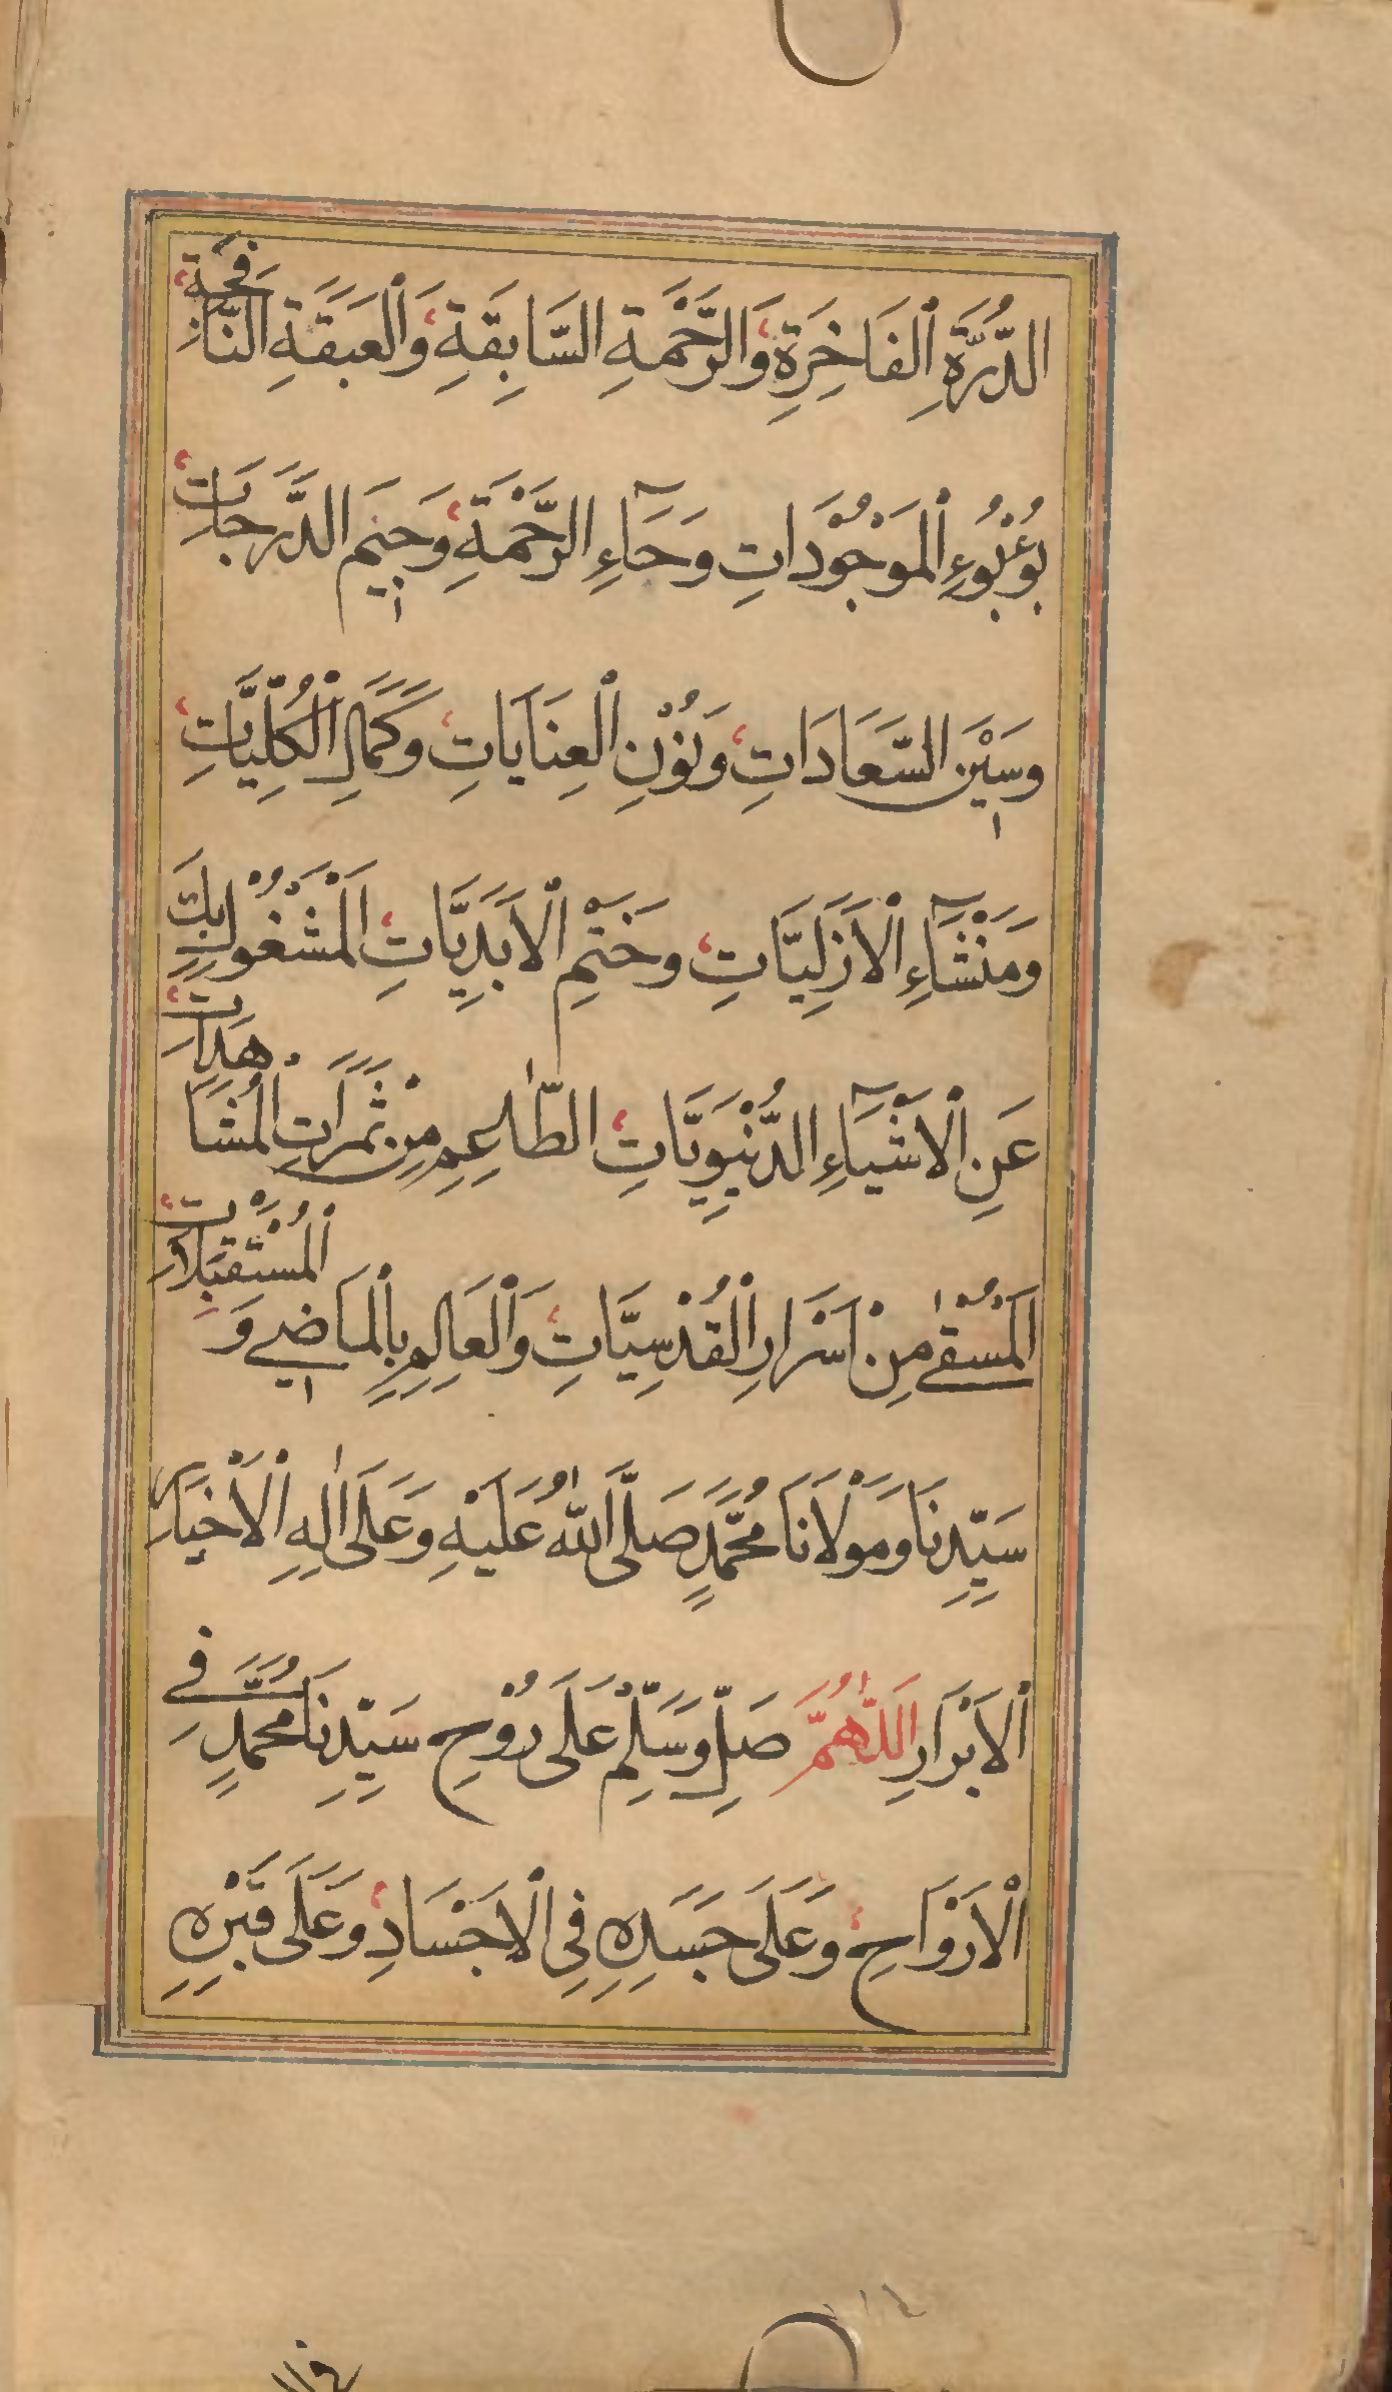 الدُّرَّةِ الْفَاخِرَةِ وَالرَّحْمَةِ السَّابِقَةِ وَالْعَبَقَةِ النَّافِحَةِ
بُؤْبُوءِ الْمَوْجُوْدَاتِ وَحَآءِ الرَّحْمَةِ وَجِيْمِ الدَّرَجَاتِ
وَسِيْنَ السَّعَادَاتِ وَنُوْنِ الْعِنَايَاتِ وَكَمَالِ الْكُلِّيَّاتِ
وَمَنْشَآءِ الْاَزَلِيَّاتِ وَخَتْمِ الْاَبَدِيَّاتِ الْمَشْغُوْلِ بِكَ
عَنِ الْاَشْيَآءِ الدُّنْيَوِيَّاتِ الطَّاعِمِ مِنْ ثَمَرَاتِ الْمُشَاهَدَاتِ
الْمُسْقٰى مِنْ اَسْرَارِ الْقُدْسِيَّاتِ وَالْعَالِمِ بِالْمَاضِي وَالْمُسْتَقْبِلَاتِ
سَيِّدِنَا وَمَوْلَانَا مُحَمَّدٍ صَلَّى اللّٰهُ عَلَيْهِ وَعَلٰى اٰلِهِ الْاَخْيَارِ
الْاَبْرَارِ اَللّٰهُمَّ صَلِّ وَسَلِّمْ عَلَى رُوْحِ سَيِّدِنَا مُحَمَّدٍ فِي
الْاَرْوَاحِ وَعَلَى جَسَدِهِ فِي الْاَجْسَادِ وَعَلَى قَبْرِهِ